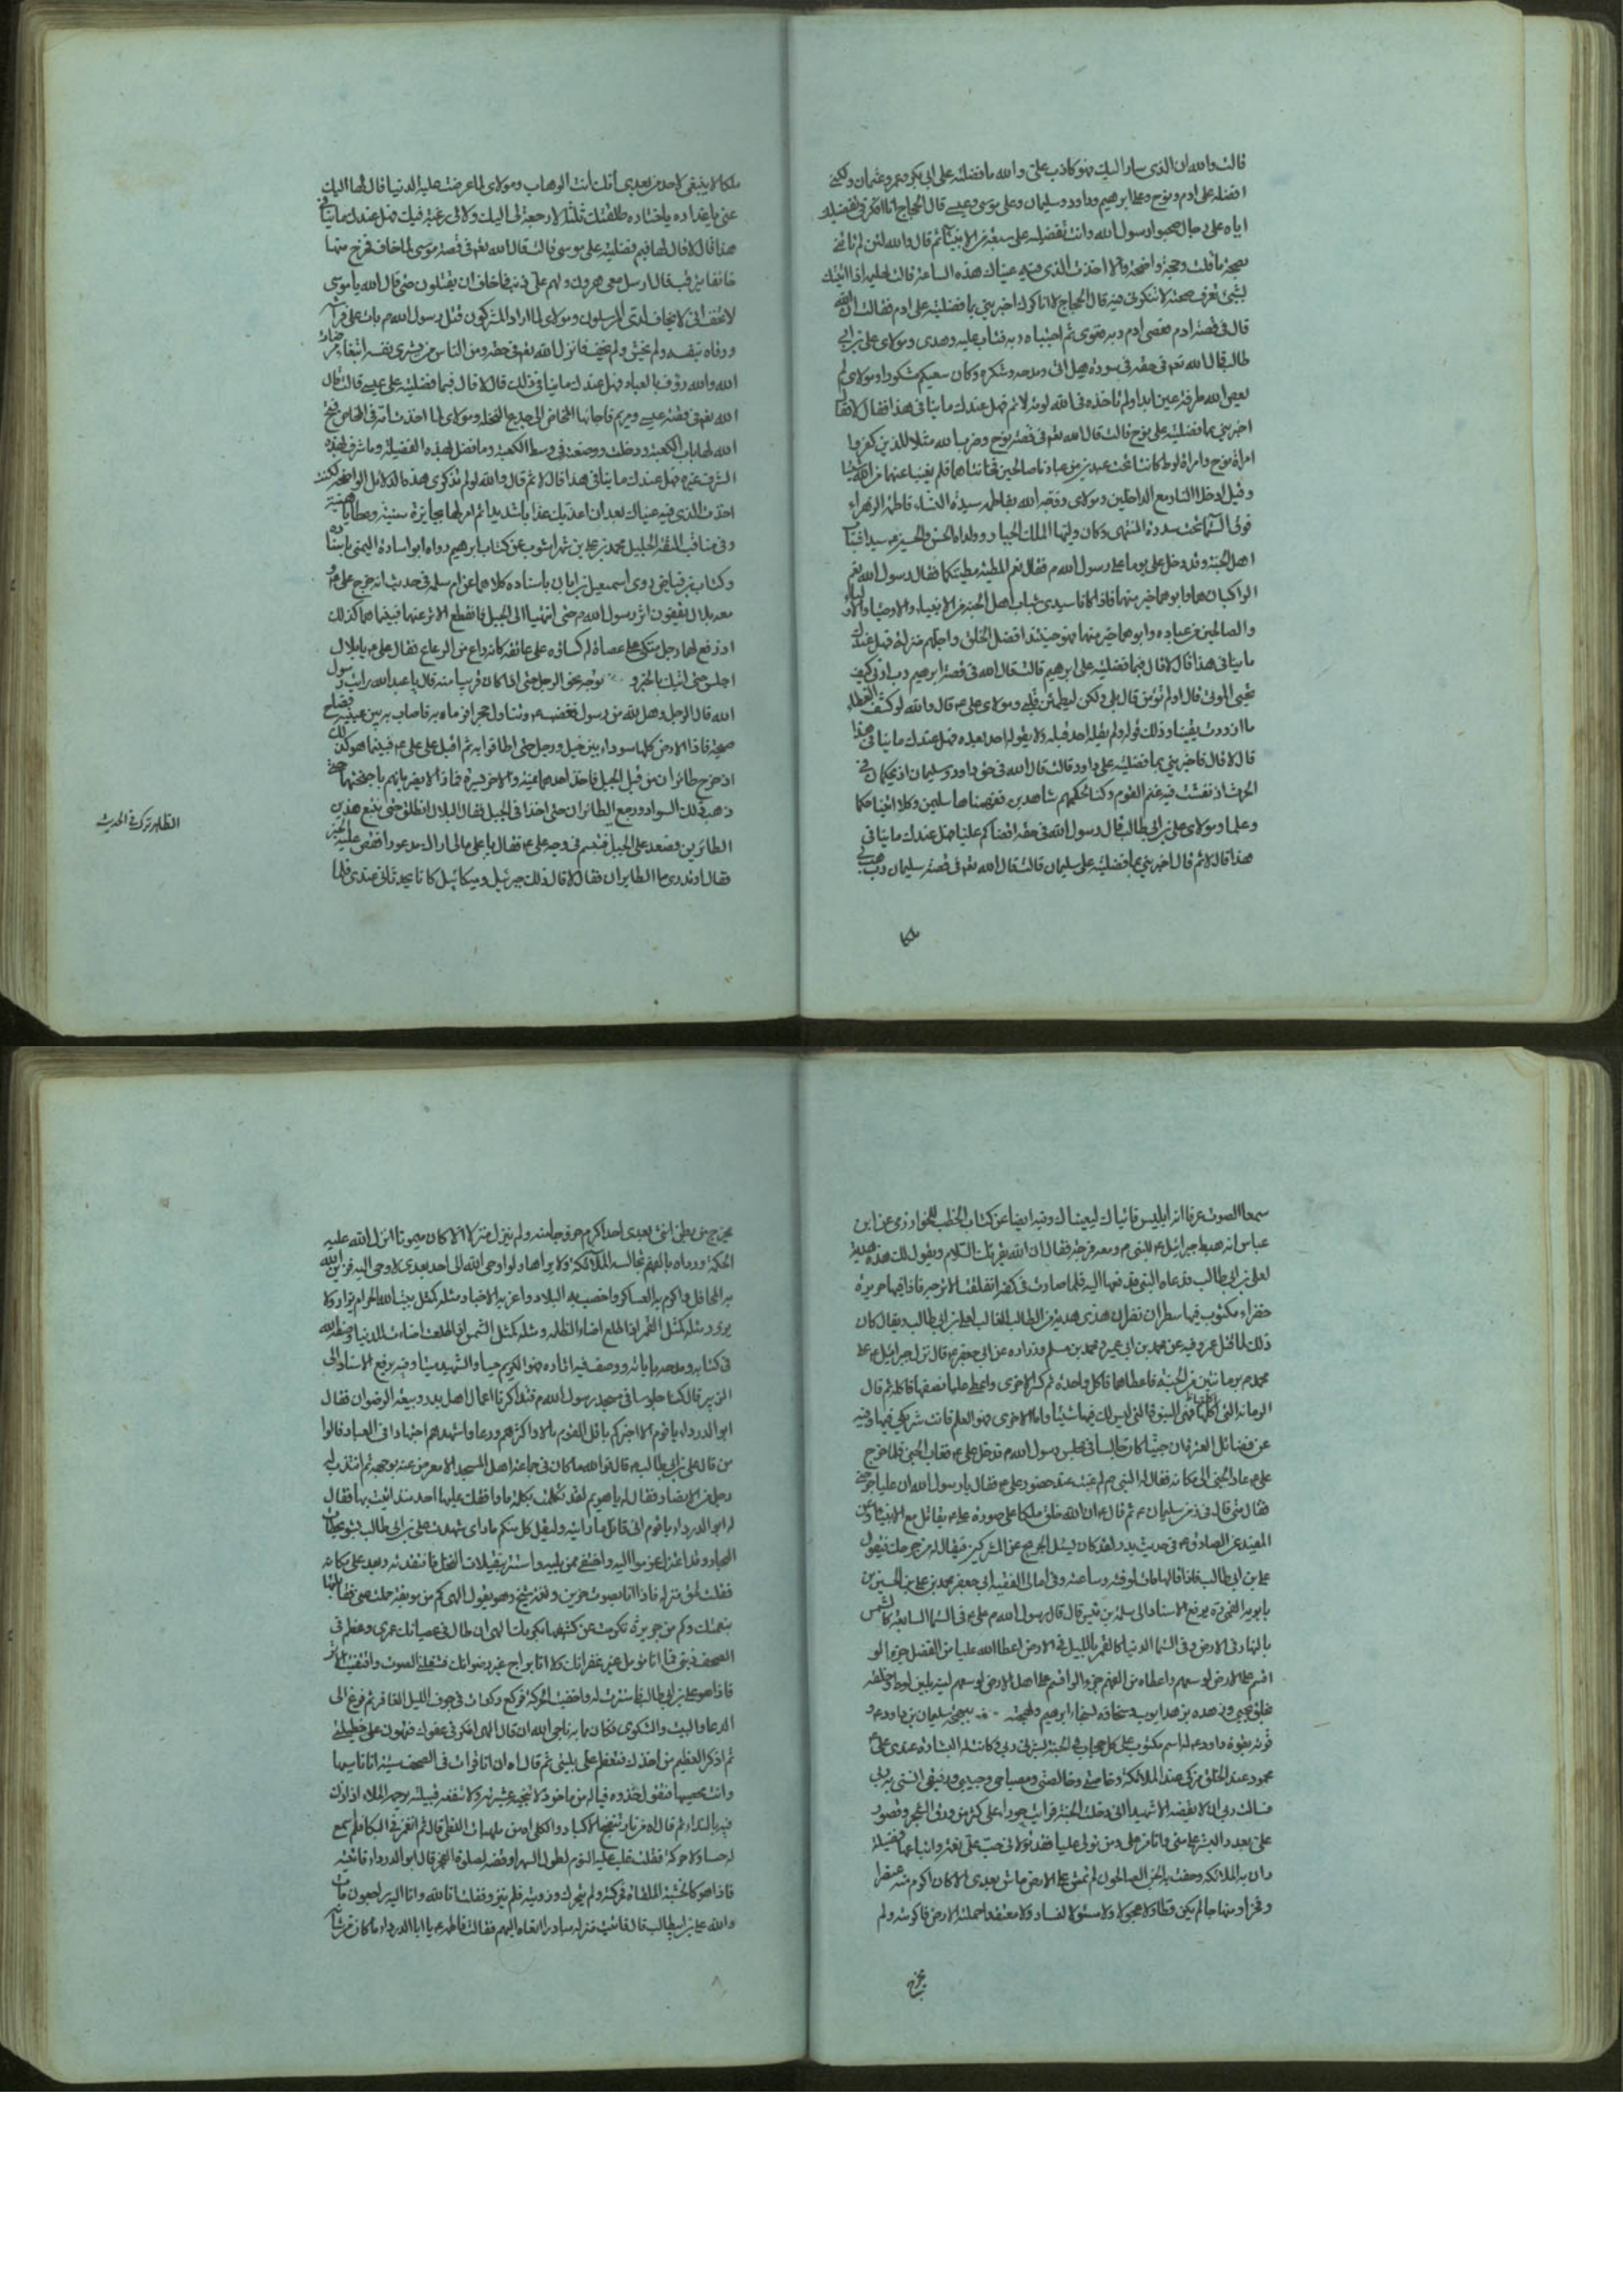 قالت والله ان الذى سار اليك فهو كاذب على والله ما فضلته على ابى بكر وعمر وعثمان ولكنى
افضله على ادم ونوح وعلى ابرهيم وداود وسليمان وعلى موسى وعيسى قال الحجاج انا انكر تفضيلك
اياه على رجال صحبوا رسول الله وانت تفضليه على سبعة من الانبياء ثم قال والله لئن لم تاتنى
بصحة ما قلت وحجة واضحة والا اخذت الذى فيه عيناك هذه الساعة قالت
بشئ تعرف صحته لا تنكر فيه قال الحجاج اخبرينى بما فضلتيه على ادم فقالت ان الله
قال فى قصة ادم فعصى ادم ربه فغوى ثم اجتباه ربه فتاب عليه وهدى ومولاى على بن ابى
طالب قال الله تعم فى حقه فى سورة هل اتى ومدحه وشكره وكان سعيكم مشكورا ومولاى لم
يعص الله طرفة عين ابدا ولم تاخذه فى الله لومة لائم فهل عندك ما ينافى هذا فقال لا فقال
اخبرينى بما فضلتيه على نوح قالت قال الله تعم فى قصة نوح وضرب الله مثلا للذين كفروا
امراة نوح وامراة لوط كانتا تحت عبدين من عبادنا صالحين فخانتاهما فلم يغنيا عنهما من الله شيئا
وقيل ادخلا النار مع الداخلين ومولاى زوجه الله بفاطمة سيدة النساء فاطمة الزهراء
فى السماء تحت سدرة المنتهى وكان وليها الملك الجبار وولداه الحسن والحسين سيدا شباب
اهل الجنة وقد دخل على يوما على رسول الله ص فقال نعم المطية مطيتكما فقال رسول الله نعم
الراكبان هما وابوهما خير منهما فاذا كانا سيدى شباب اهل الجنة من الانبياء والاوصياء والاولياء
والصالحين من عباده وابوهما خير منهما فهو حينئذ افضل الخلق واجلهم منزلة فهل عندك
ما ينافى هذا قال لا قال فبما فضلتيه على ابرهيم قالت قال الله فى قصة ابرهيم رب ارنى كيف
تحيى الموتى قال اولم تؤمن قال بلى ولكن ليطمئن قلبى ومولاى على ع قال والله لو كشف الغطاء
ما ازددت يقينا وذلك قوله ولم يقله احد قبله ولا يقوله احد بعده فهل عندك ما ينافى هذا
قال لا قال فاخبرينى بما فضلتيه على داود قالت قال الله فى حق داود وسليمان اذ يحكمان فى
الحرث اذ نفشت فيه غنم القوم وكنا لحكمهم شاهدين ففهمناها سليمن وكلا اتينا حكما
وعلما ومولاى على بن ابى طالب قال رسول الله فى حقه اقضاكم على فهل عندك ما ينافى
هذا قال لا ثم قال اخبرينى بما فضلتيه على سليمان قالت قال الله تعم فى قصة سليمان رب هب لى
ملكا
ملكا لا ينبغى لاحد من بعدى انك انت الوهاب ومولاى لما عرضت عليه الدنيا قال لها اليك
عنى يا غداره يا ختاره طلقتك ثلثا لا رجعة لى اليك ولا لى رغبة فيك فهل عندك ما ينافى
هذا قال لا قال لها فبم فضلتيه على موسى قالت قال الله تعم فى قصة موسى لما خاف فخرج منها
خائفا يترقب قال ارسل معى هرون ولهم على ذنب فاخاف ان يقتلون حتى قال الله يا موسى
لا تخف انى لا يخاف لدى المرسلون ومولاى لما اراد المشركون قتل رسول الله ص بات على فراشه
ووقاه بنفسه ولم يخش ولم يخف فانزل الله تعم فى حقه ومن الناس من يشرى نفسه ابتغاء مرضات
الله والله رؤف بالعباد فهل عندك ما ينافى ذلك قال لا قال فبما فضلتيه على عيسى قالت قال
الله تعم فى قصة عيسى ومريم فاجائها المخاض الى جذع النخلة ومولاى لما اخذت امه فى المخاض فتح
الله لها باب الكعبة ودخلت ووضعت فى وسط الكعبة وما افضل لهذه الفضيلة وما شرف لهذه
الشرف غيره فهل عندك ما ينافى هذا قال لا ثم قال والله لو لم تذكرى هذه الدلائل الواضحة لكنت
اخذت الذى فيه عيناك بعد ان اعذبك عذابا شديدا ثم امر لها بجايزة سنية وعطايا هنية
وفى مناقب الثقة الجليل محمد بن على بن شهراشوب عن كتاب ابرهيم رواه ابو اسادة اليمنى باسناده
وكتاب بن فياض روى اسمعيل بن ابان باسناده كلاهما عن ام سلمة فى حديث انه خرج على ع و
معه بلال يقفون اثر رسول الله ص حتى انتهيا الى الجبل فانقطع الاثر عنهما فبينما هما كذلك
اذ رفع لهما رجل متكئ على عصاة له كساؤه على عاتقه كانه راع من الرعاع فقال على ع يا بلال
اجلس حتى اتيك بالخبر و توجه نحو الرجل حتى اذا كان قريبا منه قال يا عبد الله رايت رسول
الله قال الرجل وهل لله من رسول فغضب ع وتناول حجرا فرماه به فاصاب به بين عينيه فصاح
صيحة فاذا الارض كلها سوداء بين خيل ورجل حتى اطافوا به ثم اقبل على على ع فبينما هو كذلك
اذ خرج طائران من قبل الجبل فاخذ احدهما يمنة والاخر يسرة فما زالا يضربانهم باجنحتهما حتى
ذهب ذلك السواد ورجع الطائران حتى اخذا فى الجبل فقال لبلال انطلق حتى نتبع هذين
الطائرين فصعد على الجبل فتبسم فى وجه على ع فقال يا على مالى اراك مدعورا فقص عليه الخبر
فقال او تدرى ما الطايران فقال لا قال ذلك جبرئيل وميكائيل كانا يحدثانى عندى فلما
الظاهر ترك فى الحديث
سمعا الصوت عرفا انه ابليس فاتياك ليعيناك وفيه ايضا عن كتاب الخطب للخوارزمى عن ابن
عباس انه هبط جبرائيل ع للنبى ص ومعه اترجة فقال ان الله يقرئك السلام ويقول لك هذه هدية
لعلى بن ابى طالب فدعاه النبى فدفعها اليه فلما صارت فى كفه انفلقت الاترجه فاذا فيها حريرة
خضراء مكتوب فيها سطران هذى هدية من الطالب الغالب لعلى بن ابى طالب ويقال كان
ذلك لما قتل عمرو وفيه عن محمد بن ابى عمير ومحمد بن مسلم وزراره عن ابى جعفر ع قال نزل جبرائيل ع على
محمد ص برمانتين من الجنة فاعطاهما فاكل واحدة ثم كسر الاخرى واعطى عليا نصفها فاكله ثم قال
الرمانة التى اكلتها فهى النبوة التى ليس لك فيها شيئا واما الاخرى فهو العلم فانت شريكى فيها وفيه
عن فضائل العشرة ان جنيا كان جالسا فى مجلس رسول الله ص فدخل على ع فغاب الجنى فلما خرج
على ع عاد الجنى الى مكانه فقال له النبى ص لم غبت عند حضور على ع فقال يا رسول الله ان عليا جرحنى
فقال متى قال فى زمن سليمان ع ثم قال ع ان الله خلق ملكا على صورة على ع يقاتل مع الانبياء
المفيد عن الصادق ع فى حديث بدر لقد كان يسئل الجريح من المشركين فيقال له من جرحك فيقول
على بن ابى طالب فاذا قالها مات لوقته وساعته وفى امالى الفقيه ابى جعفر محمد بن على بن الحسين بن
بابويه القمى ره يرفع الاسناد الى سلمة بن قيس قال قال رسول الله ص على ع فى السماء السابعة كالشمس
بالنهار فى الارض وفى السماء الدنيا كالقمر بالليل فى الارض اعطا الله عليا من الفضل جزءا لو
اقسم على اهل الارض لوسعهم واعطاه من الفهم جزءا لو اقسم على اهل الارض لوسعهم لينه بلين لوط وخلقه
بخلق يحيى وزهده بزهد ايوب وسخاؤه بسخاء ابرهيم وبهجته ببهجة سليمان بن داود ع و
قوته بقوة داود ع له اسم مكتوب على كل حجاب فى الجنة بشرنى ربى وكانت له البشارة عندى على ع
محمود عند الخلق مزكى عند الملائكة وخاصتى وخالصتى ومصباحى وحبيبى ورفيقى انسنى به ربى
فسالت ربى ان لا يقبضه الا شهيدا انى دخلت الجنة فرايت حوراء على اكثر من ورق الشجر وقصور
على بعدد البشر على منى وانا من على ومن تولى عليا فقد تولانى حب على نعمة واتباعه فضيلة
دان به الملائكة وحفت به الجن الصالحون لم تمش على الارض ماش بعدى الا كان اكرم منه عنصرا
وفخرا ومنهاجا لم يكن فظا ولا عجولا ولا مسترسلا لفساد ولا معتقد احملته الارض فاكرمته ولم
يخرج
يخرج من بطن انثى بعدى احد اكرم خروجا منه ولم ينزل منزلا الا كان ميمونا انزل الله عليه
الحكمة ورداه بالفهم تجالسه الملائكة ولا يراها ولو اوحى الله الى احد بعدى لاوحى اليه فزين الله
به المحافل واكرم به العساكر واخصب به البلاد واعز به الاخيار ومثله كمثل بيت الله الحرام يزار ولا
يزور ومثله كمثل القمر اذا طلع اضاء الظلمة ومثله كمثل الشمس اذا طلعت اضاءت الدنيا وصفه الله
فى كتابه ومدحه باياته ووصف فيه اثاره فهو الكريم حيا والشهيد ميتا وفيه يرفع الاسناد الى
الزبير قال كنا جلوسا فى مسجد رسول الله ص فتذاكرنا اعمال اهل بدر وبيعة الرضوان فقال
ابو الدرداء يا قوم الا اخبركم باقل القوم مالا واكثرهم ورعا واشدهم اجتهادا فى العبادة قالوا
من قال على بن ابى طالب ع قال فوالله ما كان فى جماعة اهل المسجد الا معرض عنه بوجهه ثم انتدب له
رجل من الانصار فقال له يا عويم لقد تكلمت بكلمة ما وافقك عليها احد منذ اتيت بها فقال
له ابو الدرداء يا قوم انى قائل ما رايت وليقل كل منكم ما راى شهدت على بن ابى طالب بشويحطات
النجار وقد اعتزل عن مواليه واختفى ممن يليه واستتر ببعيلات النخل فافتقدته وبعد على مكانه
فقلت لحق منزله فاذا انا بصوت حزين ونغمة شجى وهو يقول الهى كم من موبقة حملت عنى فقابلتها
بنعمتك وكم من جريرة تكرمت عن كشفها بكرمك الهى ان طال فى عصيانك عمرى وعظم فى
الصحف ذنبى فما انا مؤمل غير غفرانك ولا انا براج غير رضوانك فشغلنى الصوت واقتفيت الاثر
فاذا هو على بن ابى طالب فاستترت له واخفيت الحركة فركع ركعات فى جوف الليل الغابر ثم فرغ الى
الدعا والبث والشكوى فكان ما به ناجى الله ان قال الهى افكر فى عفوك فتهون على خطيئتى
ثم اذكر العظيم من اخذك فتعظم على بليتى ثم قال اه ان انا قرات فى الصحف سيئة انا ناسيها
وانت محصيها فتقول خذوه فياله من ماخوذ لا تنجيه عشيرته ولا تنفعه قبيلته يرحمه الملاء اذا اذن
فيه بالنداء ثم قال اه من نار تنضج الاكباد والكلى اه من ملهبات اللظى قال ثم انغمر فى البكا فلم اسمع
له حسا ولا حركة فقلت غلب عليه النوم لطول السهر اوقظه لصلوة الفجر قال ابو الدرداء فاتيته
فاذا هو كالخشبة الملقاة فحركته ولم يتحرك وزويته فلم ينزو فقلت انا لله وانا اليه راجعون مات
والله على بن ابيطالب قال فاتيت منزله مبادرا انعاه اليهم فقالت فاطمة ع يا ابا الدرداء ما كان من شانه